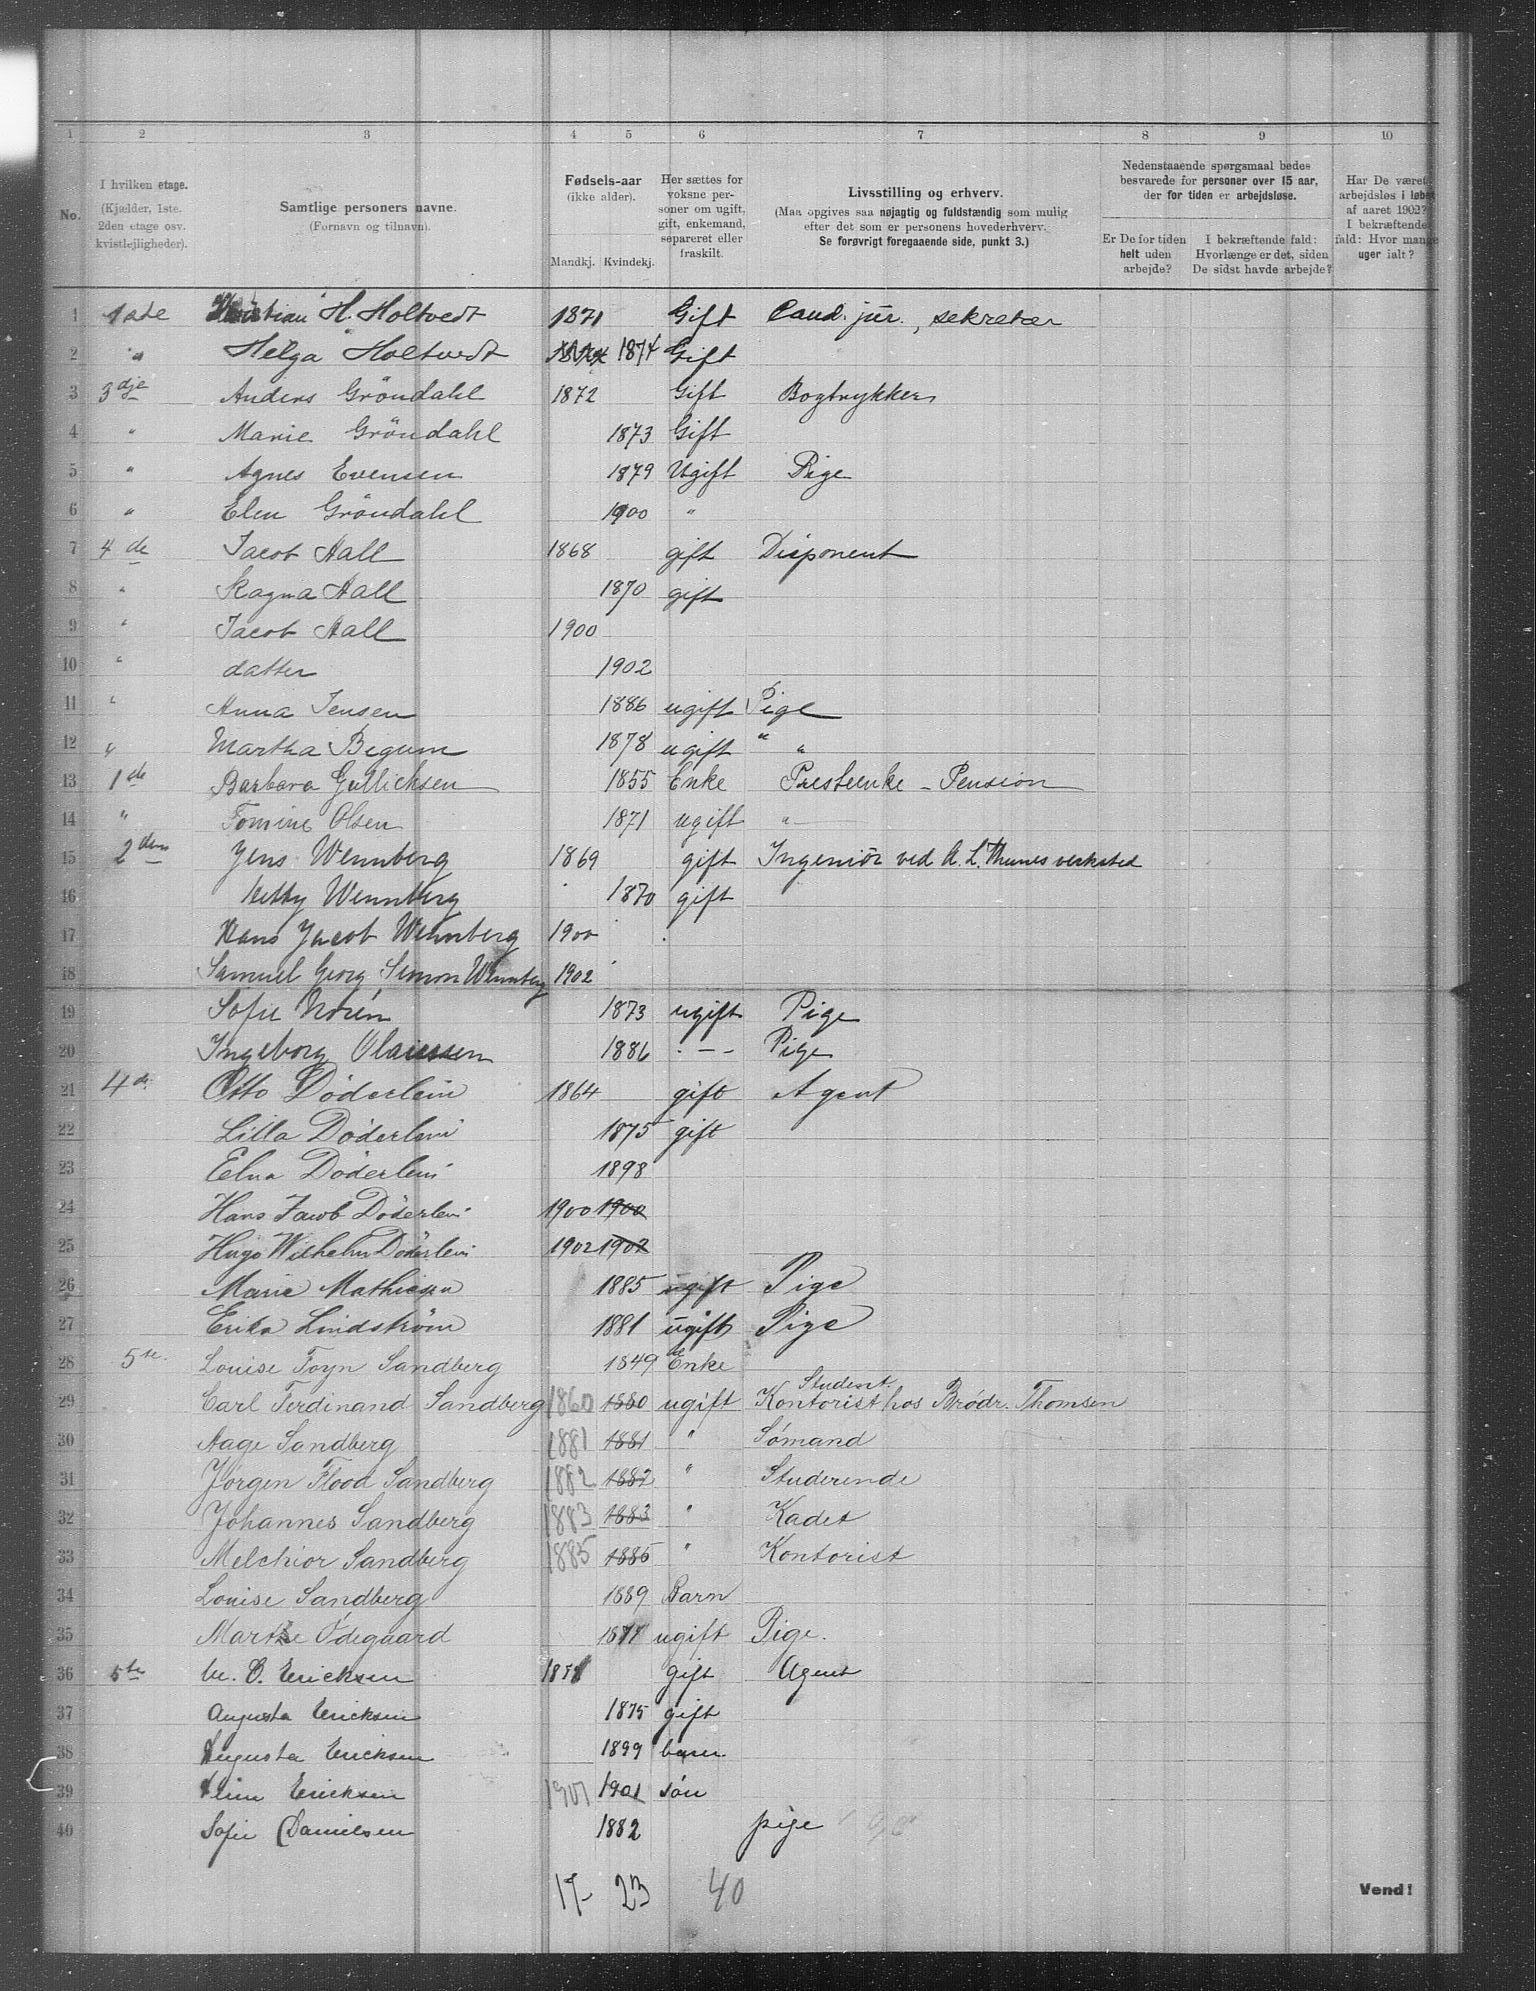 1 2 3 4 5 6 7 8 9 10
No.
I hvilken etage. (Kjælder, 1ste. 2den etage osv. kvistlejligheder).
Samtlige personers navne. (Fornavn og tilnavn).
Fødsels-aar (ikke alder). Mandkj. Kvindekj.
Her sættes for voksne personer om ugift, gift, enkemand, separeret eller fraskilt.
Livsstilling og erhverv. (Maa opgives saa nøjagtig og fuldstændig som mulig efter det som er personens hovederhverv. Se forøvrigt foregaaende side, punkt 3.)
Nedenstaaende spørgsmaal bedes besvarede for personer over 15 aar, der for tiden er arbejdsløse.
Er De for tiden helt uden arbejde?
I bekræftende fald: Hvorlænge er det, siden De sidst havde arbejde?
Har De været arbejdsløs i løbet af aaret 1902? I bekræftende fald: Hvor mange uger ialt?
1 1ste Kristian H. Holtvedt 1871 Gift Cand. jur., sekretær
2 " Helga Holtvedt 1874 Gift
3 3dje Anders Gröndahl 1872 Gift Bogtrykker
4 " Marie Gröndahl 1873 Gift
5 " Agnes Evensen 1879 Ugift Pige
6 " Elen Gröndahl 1900 "
7 4de Jacob Aall 1868 gift Disponent
8 " Ragna Aall 1870 gift
9 " Jacob Aall 1900
10 " datter 1902
11 " Anna Jensen 1886 ugift Pige
12 " Martha Begum 1878 ugift " "
13 1de Barbara Gullichsen 1855 Enke Presteenke - Pension
14 " Tomine Olsen 1871 ugift "
15 2den Jens Wennberg 1869 gift Ingeniör ved A. L. Thunes verksted
16 Hetty Wennberg 1870 gift
17 Hans Jacob Wennberg 1900
18 Samuel Georg Simon Wennberg 1902
19 Sofie Norén 1873 ugift Pige
20 Ingeborg Olaussen 1886 - - - Pige
21 4de Otto Döderlein 1864 gift Agent
22 Lilla Döderlein 1875 gift
23 Elna Döderlein 1898
24 Hans Jacob Döderlein 1900 1900
25 Hugo Wilhelm Döderlein 1902 1902
26 Marie Mathiesen 1885 ugift Pige
27 Erika Lindström 1881 ugift Pige
28 5te. Louise Foyn Sandberg 1849 Enke
29 Carl Ferdinand Sandberg 1860 1880 ugift Student. Kontorist hos Brødr. Thomsen
30 Aage Sandberg 1881 1881 " Sømand
31 Jørgen Flood Sandberg 1882 1882 " Studerende
32 Johannes Sandberg 1883 1883 " Kadet
33 Melchior Sandberg 1885 1885 " Kontorist
34 Louise Sandberg 1889 Barn
35 Marthe Ødegaard 1877 ugift Pige.
36 5te Ericksen gift Agent
37 Augusta Ericksen 1875 gift
38 Augusta Ericksen 1899 barn
39 Ericksen 1901 1901 søn
40 Sofie Danielsen 1882 pige
17 - 23 40
Vend!